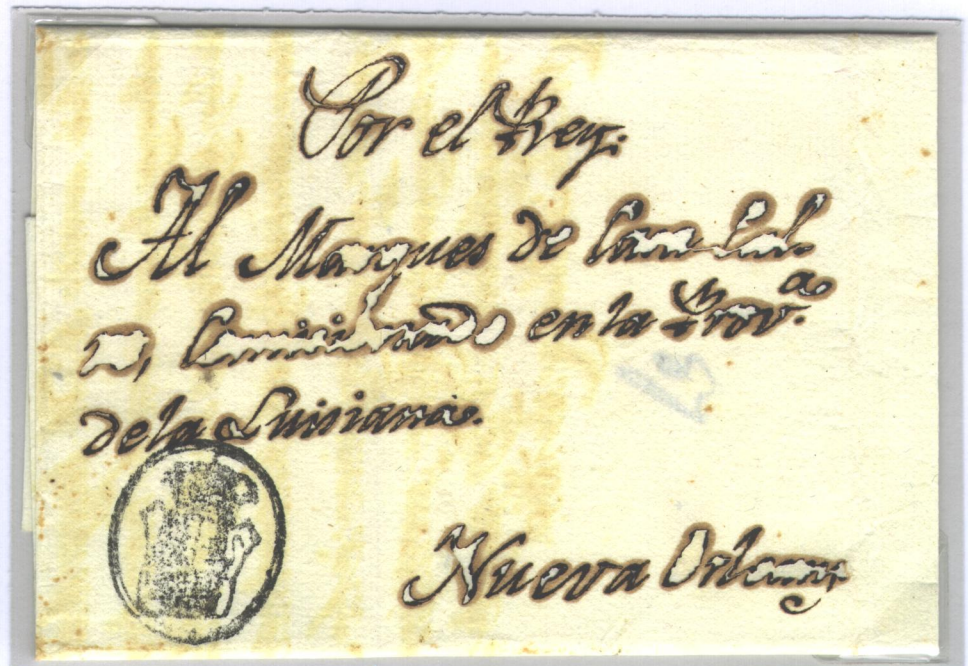 Por el Rey.
Al Marques de Casa Cal-
vo, Comisionado en la Prov.ª
de la Luisiana.
Nueva Orleans